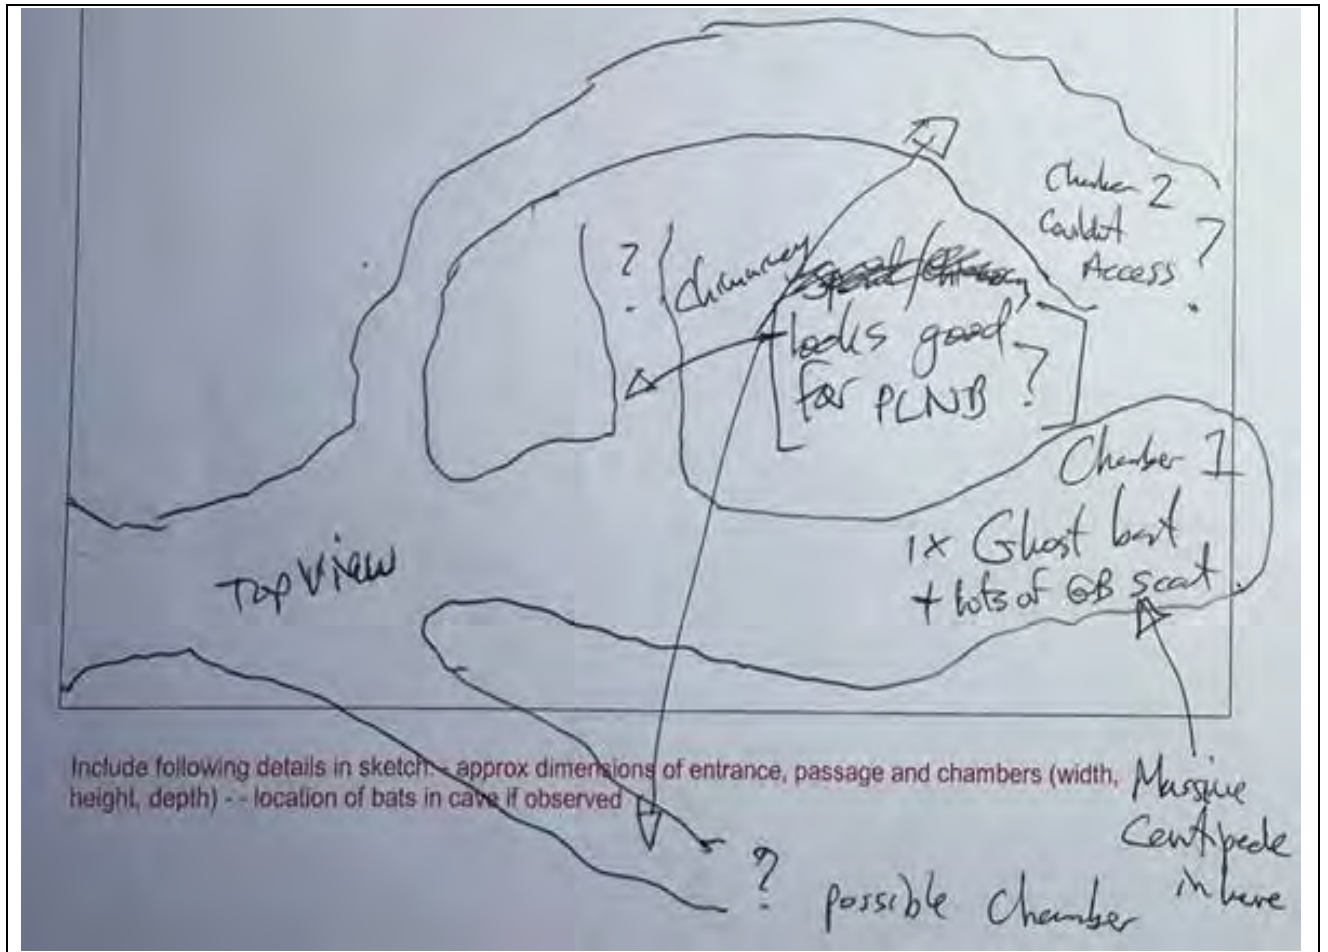 Chamber 2
Couldn't
Access ?
?
chimney
looks good
for PLNB ?
Chamber 1
1x Ghost bat
+ lots of GB scat
Top View
Include following details in sketch: - approx dimensions of entrance, passage and chambers (width,
height, depth) - - location of bats in cave if observed
Massive
Centipede
in here
?
possible Chamber